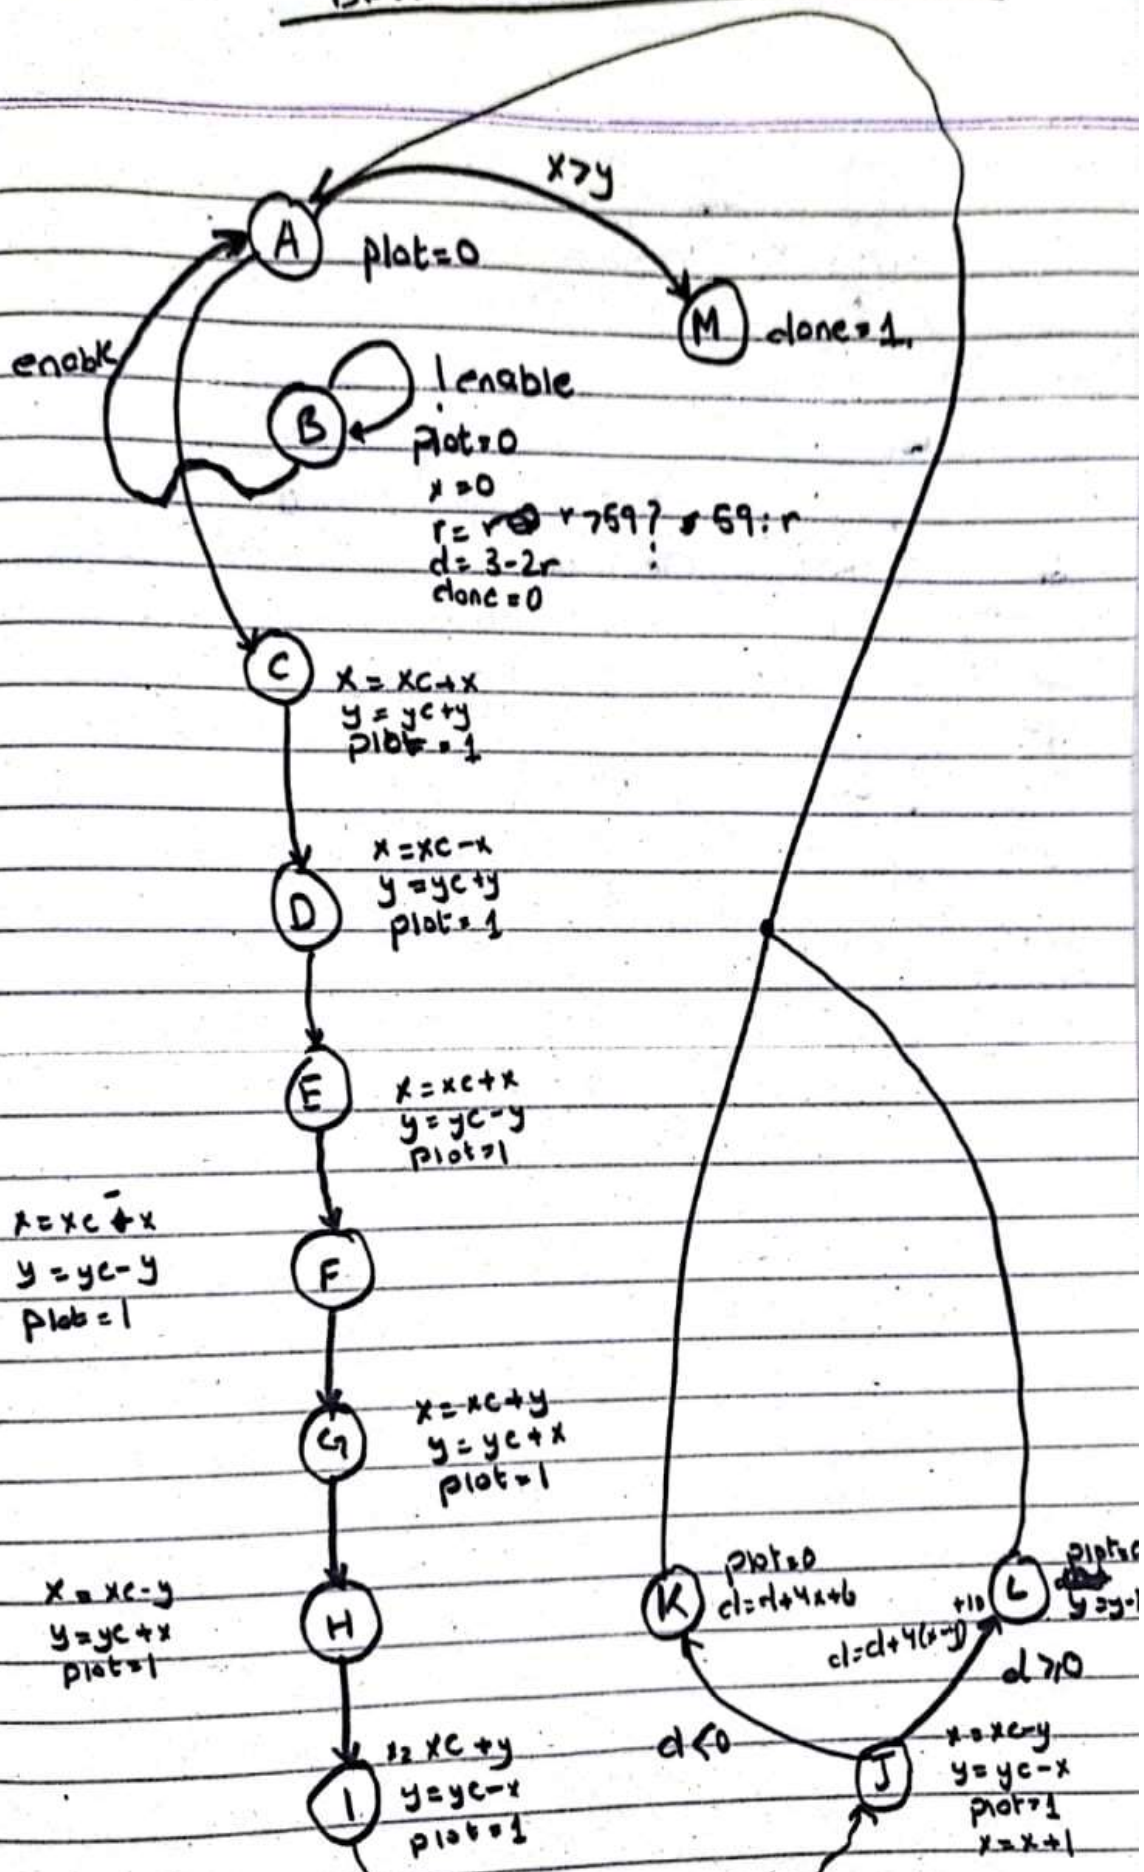 x>y
A
plot=0
M
done=1.
enable
B
!enable
plot=0
x=0
r= r>59? 59:r
d=3-2r
done=0
C
x=xc+x
y=yc+y
plot=1
x=xc-x
y=yc+y
plot=1
D
E
x=xc+x
y=yc-y
plot=1
x=xc-x
y=yc-y
plot=1
F
G
x=xc+y
y=yc+x
plot=1
x=xc-y
y=yc+x
plot=1
H
K
plot=0
d=d+4x+6
L
plot=0
y=y-1
+10
d=d+4(x-y)
d≥0
d<0
J
x=xc-y
y=yc-x
plot=1
x=x+1
I
x=xc+y
y=yc-x
plot=1